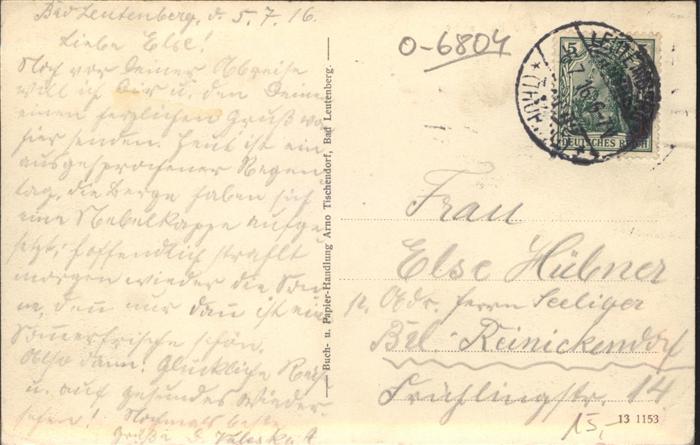 Bad Leutenberg, d. 5.7.16.
Liebe Else!
Noch vor Deiner Abreise
will ich Dir u. den Deinen
einen herzlichen Gruß von
hier senden. Heut ist ein
ausgesprochener Regen
tag, die Berge haben sich
eine Nebelkappe aufge
setzt; hoffendlich strahlt
morgen wieder die Son
ne, den nur dan ist eine
Somerfrische schön.
Also dann: Glückliche Reise
u. auf gesundes Wieder
sehen! Nochmals beste
Grüße d.
Buch- u. Papier-Handlung Arno Tischendorf, Bad Leutenberg.
0-6804
5
DEUTSCHES REICH
Frau
Else Hübner
p. Adr. Herrn Seeliger
Bln-Reinickendorf
Frühlingstr. 14
15,-
13 1153